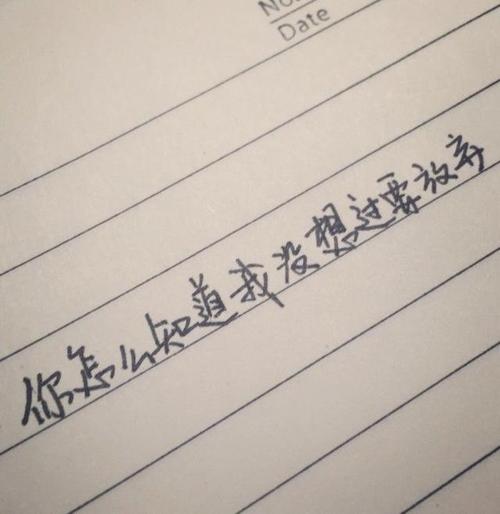 No.
Date
你怎么知道我没想过要放弃